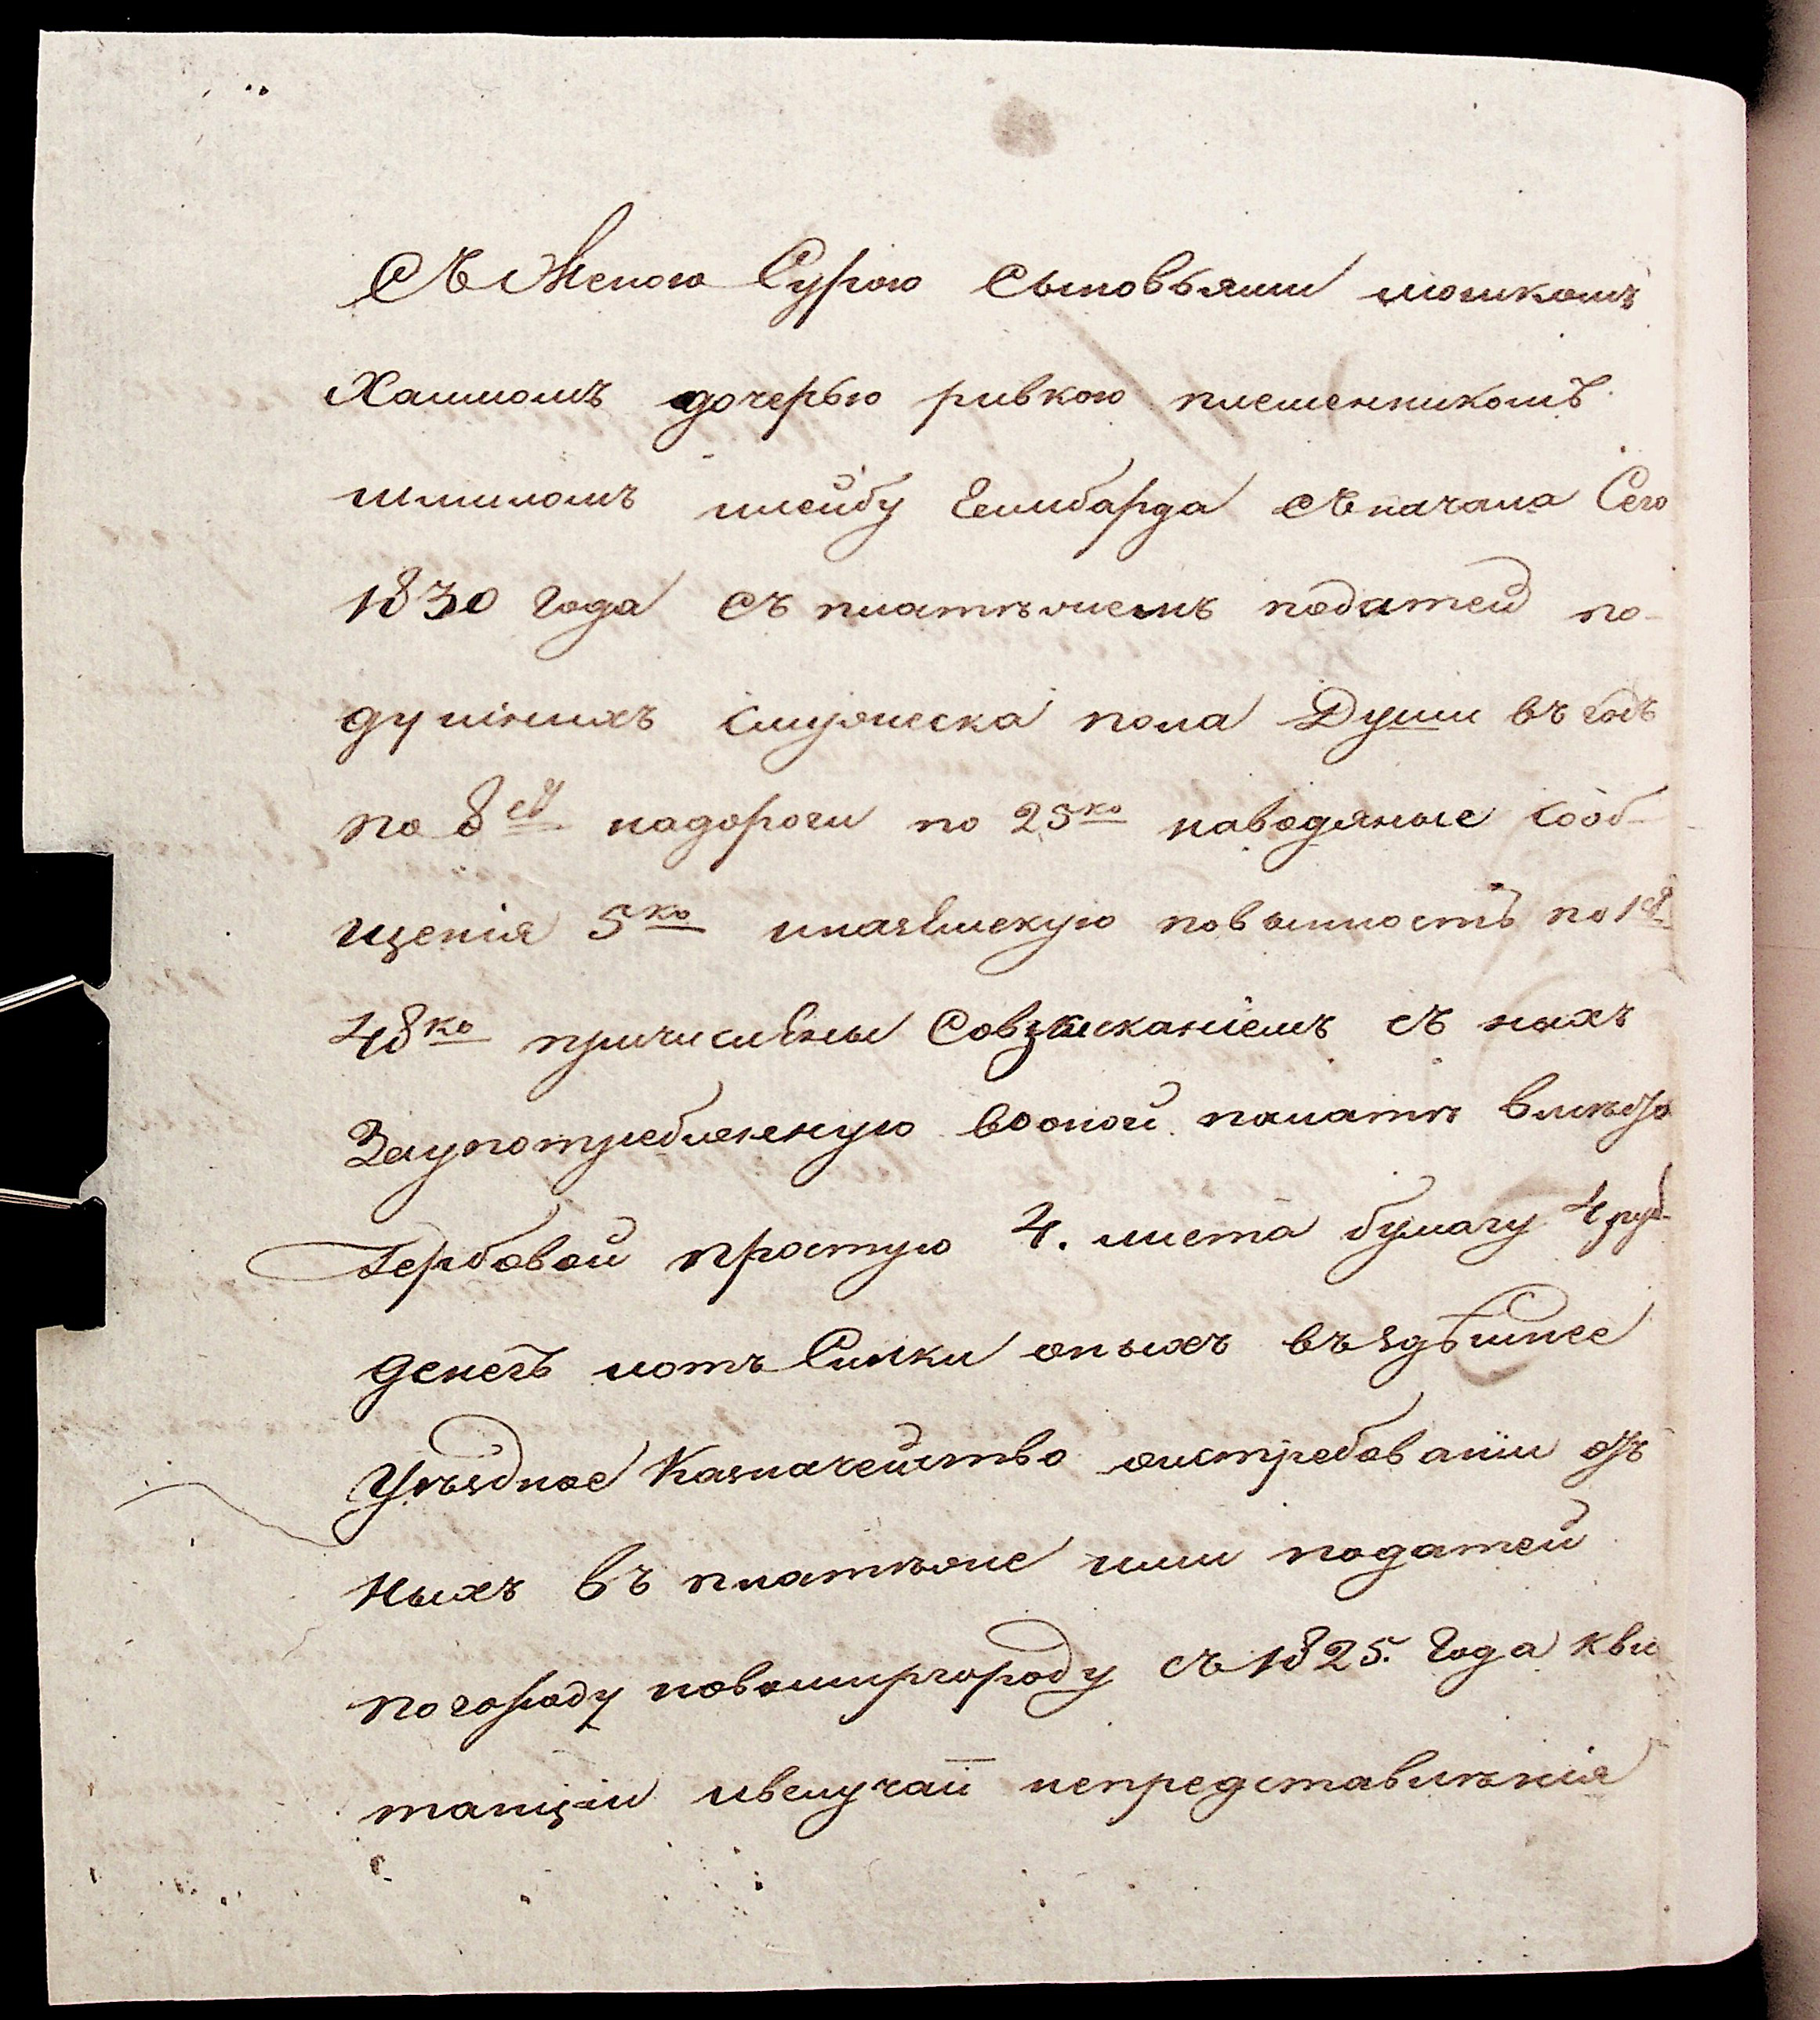 съ женою Сурою сыновьями мошкомъ
Хаимомъ дочерью ривкою племенникомъ
шмиломъ шлейбу Гелибарда съ начала Сего
1830 года съ платѣжемъ податей по-
душныхъ смужеска пола Души въ годъ
по 8 ей надороги по 25 ко наводяные сооб-
щенія 5 ко повынность по 1 р
48 ко причислены Совзысканіемъ съ ныхъ
Заупотребленную вооной палатѣ вмѣсто
гербовой простую 4. листа бумагу 4 руб
денегъ иотъ Силки оныхъ въздѣшнее
Уѣздное Казначейство оистребованіи отъ
ныхъ въ платѣже ими податей
погороду новомиргороду съ 1825. года кви
танціи ивслучаи непредставлѣнія